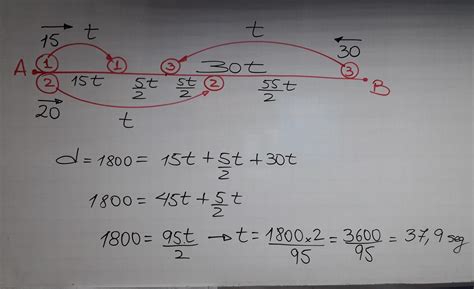 15 t t 30
A 1 1 3 30t 3
2 15t 5t/2 5t/2 2 55t/2 B
20 t
d = 1800 = 15t + 5/2 t + 30t
1800 = 45t + 5/2 t
1800 = 95t/2 → t = 1800x2/95 = 3600/95 = 37,9 seg